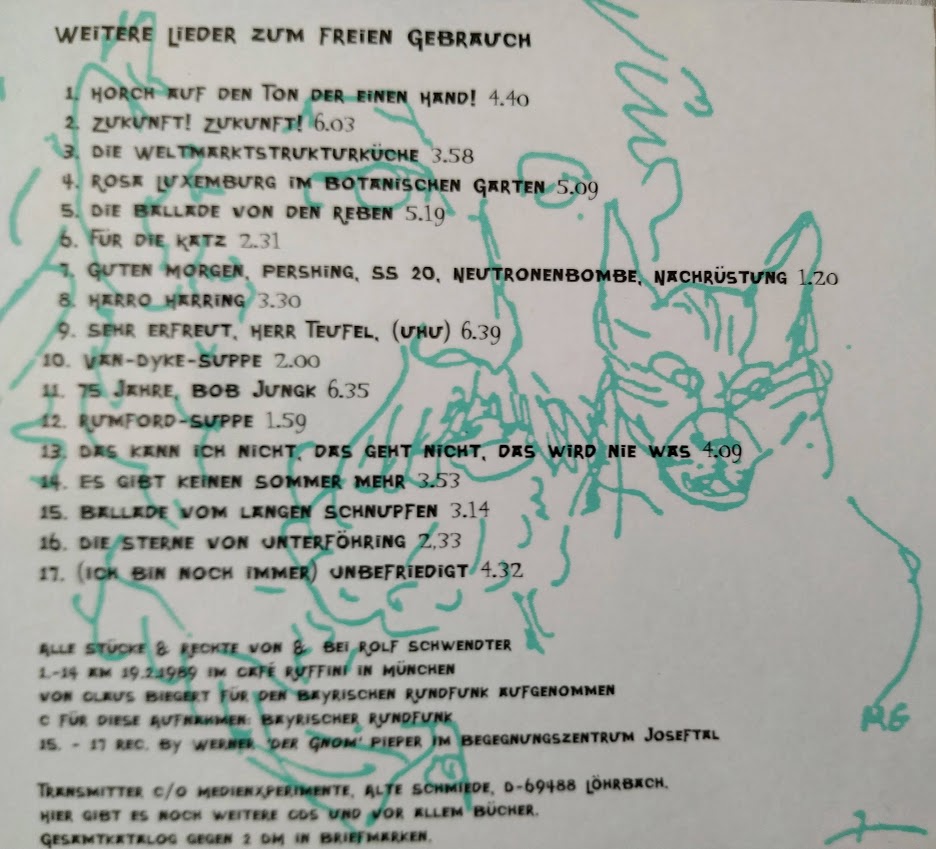 WEITERE LIEDER ZUM FREIEN GEBRAUCH
1. HORCH AUF DEN TON DER EINEN HAND! 4.40
2. ZUKUNFT! ZUKUNFT! 6.03
3. DIE WELTMARKTSTRUKTURKÜCHE 3.58
4. ROSA LUXEMBURG IM BOTANISCHEN GARTEN 5.09
5. DIE BALLADE VON DEN REBEN 5.19
6. FÜR DIE KATZ 2.31
7. GUTEN MORGEN, PERSHING, SS 20, NEUTRONENBOMBE, NACHRÜSTUNG 1.20
8. HARRO HARRING 3.30
9. SEHR ERFREUT, HERR TEUFEL, (UHU) 6.39
10. VAN-DYKE-SUPPE 2.00
11. 75 JAHRE, BOB JUNGK 6.35
12. RUMFORD-SUPPE 1.59
13. DAS KANN ICH NICHT, DAS GEHT NICHT, DAS WIRD NIE WAS 4.09
14. ES GIBT KEINEN SOMMER MEHR 3.53
15. BALLADE VOM LANGEN SCHNUPFEN 3.14
16. DIE STERNE VON UNTERFÖHRING 2,33
17. (ICH BIN NOCH IMMER) UNBEFRIEDIGT 4.32
ALLE STÜCKE & RECHTE VON & BEI ROLF SCHWENDTER
1.-14 AM 19.2.1989 IM CAFÉ RUFFINI IN MÜNCHEN
VON CLAUS BIEGERT FÜR DEN BAYRISCHEN RUNDFUNK AUFGENOMMEN
C FÜR DIESE AUFNAHMEN: BAYRISCHER RUNDFUNK
15. - 17 REC. BY WERNER 'DER GNOM' PIEPER IM BEGEGNUNGSZENTRUM JOSEFTAL
TRANSMITTER C/O MEDIENXPERIMENTE, ALTE SCHMIEDE, D-69488 LÖHRBACH.
HIER GIBT ES NOCH WEITERE CDS UND VOR ALLEM BÜCHER.
GESAMTKATALOG GEGEN 2 DM IN BRIEFMARKEN.